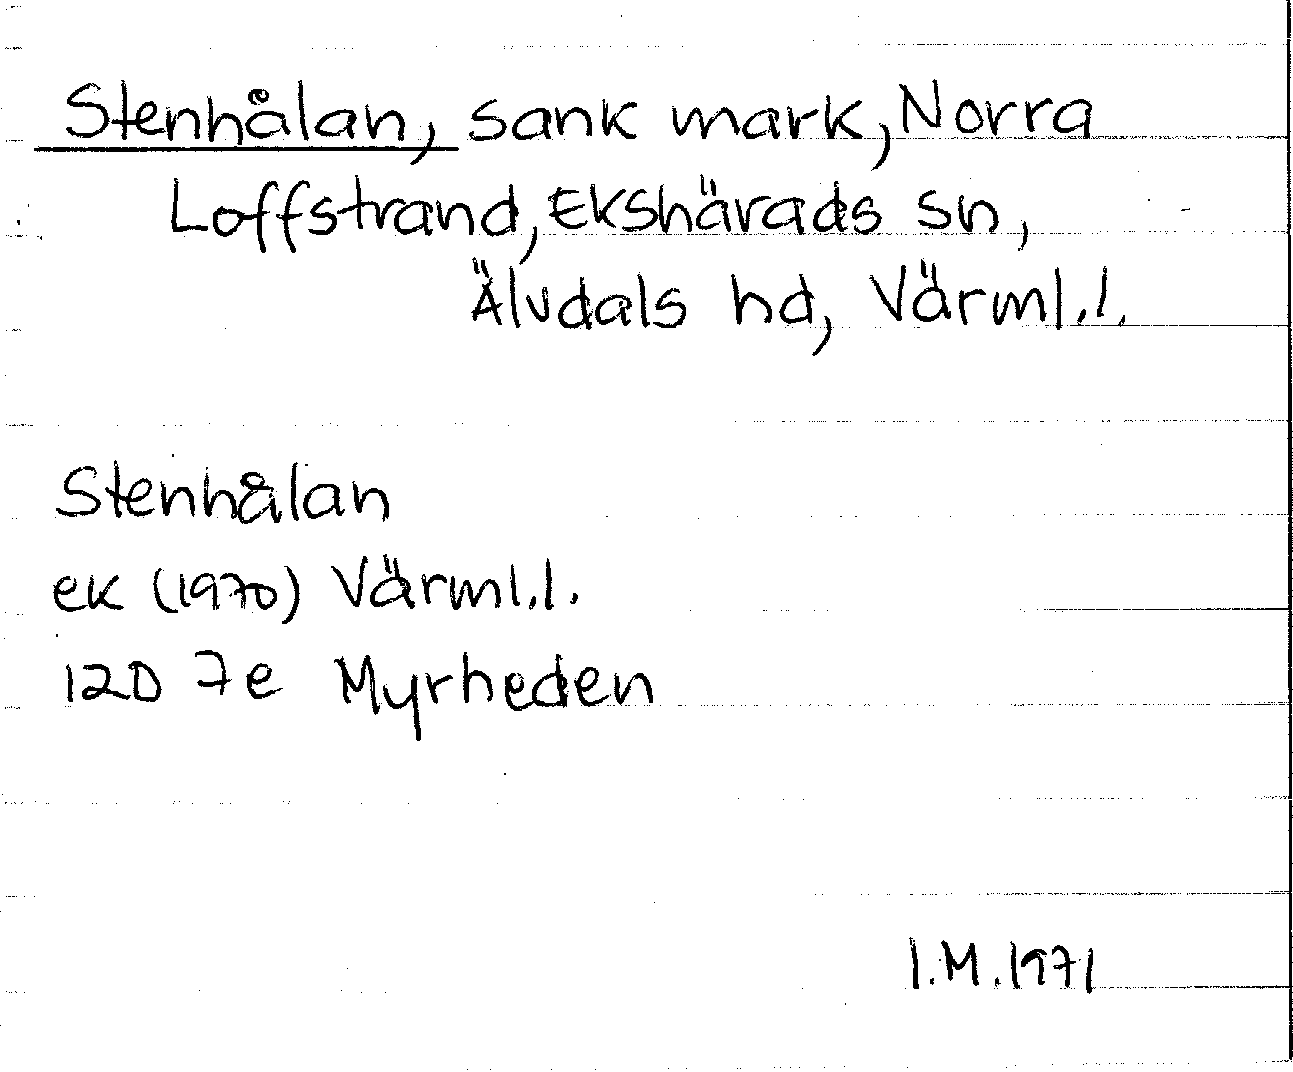 Stenhålan, sank mark, Norra
Loffstrand, Ekshärads sn,
Älvdals hd, Värml.l.
Stenhålan
ek (1970) Värml.l.
12D 7e Myrheden
I.M.1971